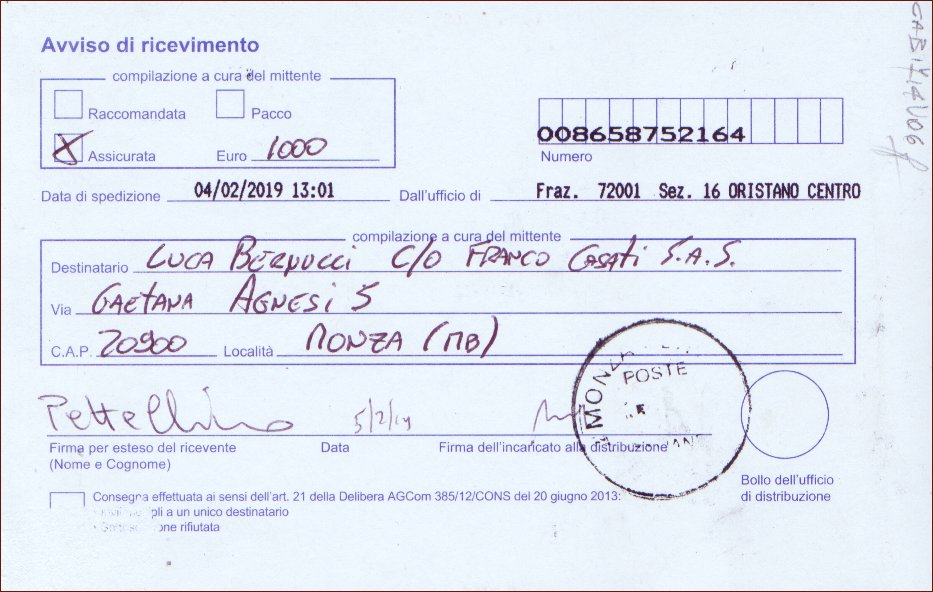 Avviso di ricevimento
compilazione a cura del mittente
Raccomandata Pacco
Assicurata Euro 1000
008658752164
Numero
Data di spedizione 04/02/2019 13:01 Dall'ufficio di Fraz. 72001 Sez. 16 ORISTANO CENTRO
compilazione a cura del mittente
Destinatario LUCA BERNUCCI C/O FRANCO CASATI S.A.S.
Via GAETANA AGNESI 5
C.A.P. 20900 Località MONZA (MB)
MONZA
POSTE
5/2/19
Firma per esteso del ricevente Data Firma dell'incaricato alla distribuzione
(Nome e Cognome)
Bollo dell'ufficio
di distribuzione
Consegna effettuata ai sensi dell'art. 21 della Delibera AGCom 385/12/CONS del 20 giugno 2013:
a un unico destinatario
rifiutata